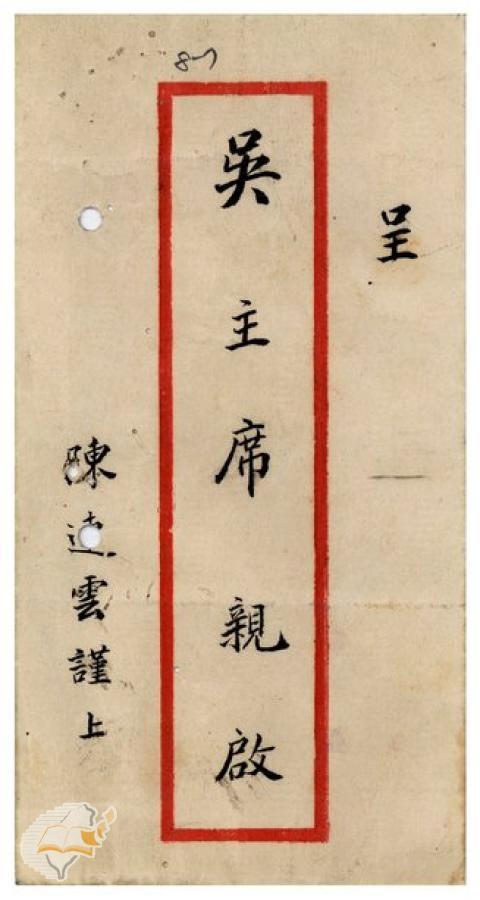 呈
吳主席親啟
陳遠雲謹上
87